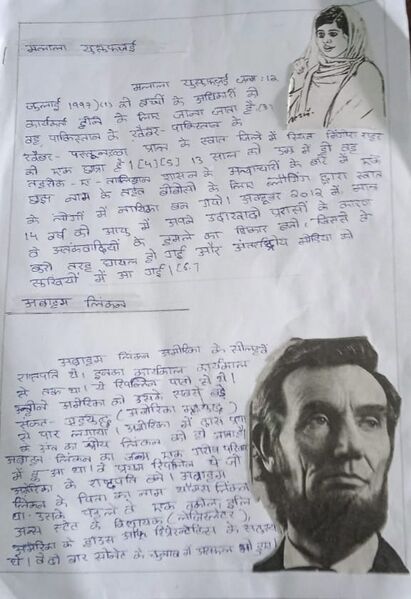 मलाला युसुफ़ज़ई
मलाला युसुफ़ज़ई जन्म : 12
जुलाई 1997)(1) को बच्चों के अधिकारों की
कार्यकर्ता होने के लिए जाना जाता है।(3)
वह पाकिस्तान के खैबर- पख़्तूनख़्वा
प्रान्त के स्वात जिले में स्थित मिंगोरा शहर
की एक छात्रा है।[4][5] 13 साल की उम्र में ही वह
तहरीक- ए- तालिबान शासन के अत्याचारों के बारे में एक
छद्म नाम के तहत बीबीसी के लिए ब्लॉगिंग द्वारा स्वात
के लोगों में नायिका बन गयी। अक्टूबर 2012 में मात्र
14 वर्ष की आयु में अपने उदारवादी प्रयासों के कारण
वे आतंकवादियों के हमले का शिकार बनी, जिससे वे
बुरी तरह घायल हो गई और अंतर्राष्ट्रीय मीडिया की
सुर्खियों में आ गई।[6.7
अब्राहम लिंकन
अब्राहम लिंकन अमेरिका के सोलहवें
राष्ट्रपति थे। इनका कार्यकाल
से तक था। ये रिपब्लिकन पार्टी से थे।
उन्होने अमेरिका को उसके सबसे बड़े
संकट- गृहयुद्ध (अमेरिकी गृहयुद्ध)
से पार लगाया। अमेरिका में दास प्रथा
के अंत का श्रेय लिंकन को ही जाता है।
अब्राहम लिंकन का जन्म एक गरीब परिवार
में हुआ था। वे प्रथम रिपब्लिकन थे जो
अमेरिका के राष्ट्रपति बने। अब्राहम
लिंकन के पिता का नाम थॉमस लिंकन
था। उसके पहले वे एक वकील,
स्टेट के विधायक (लेजिस्लेटर),
अमेरिका के हाउस ऑफ़ रिप्रेजेंटेटिव्स के सदस्य
थे। वे दो बार सीनेट के चुनाव में असफल भी हुए।